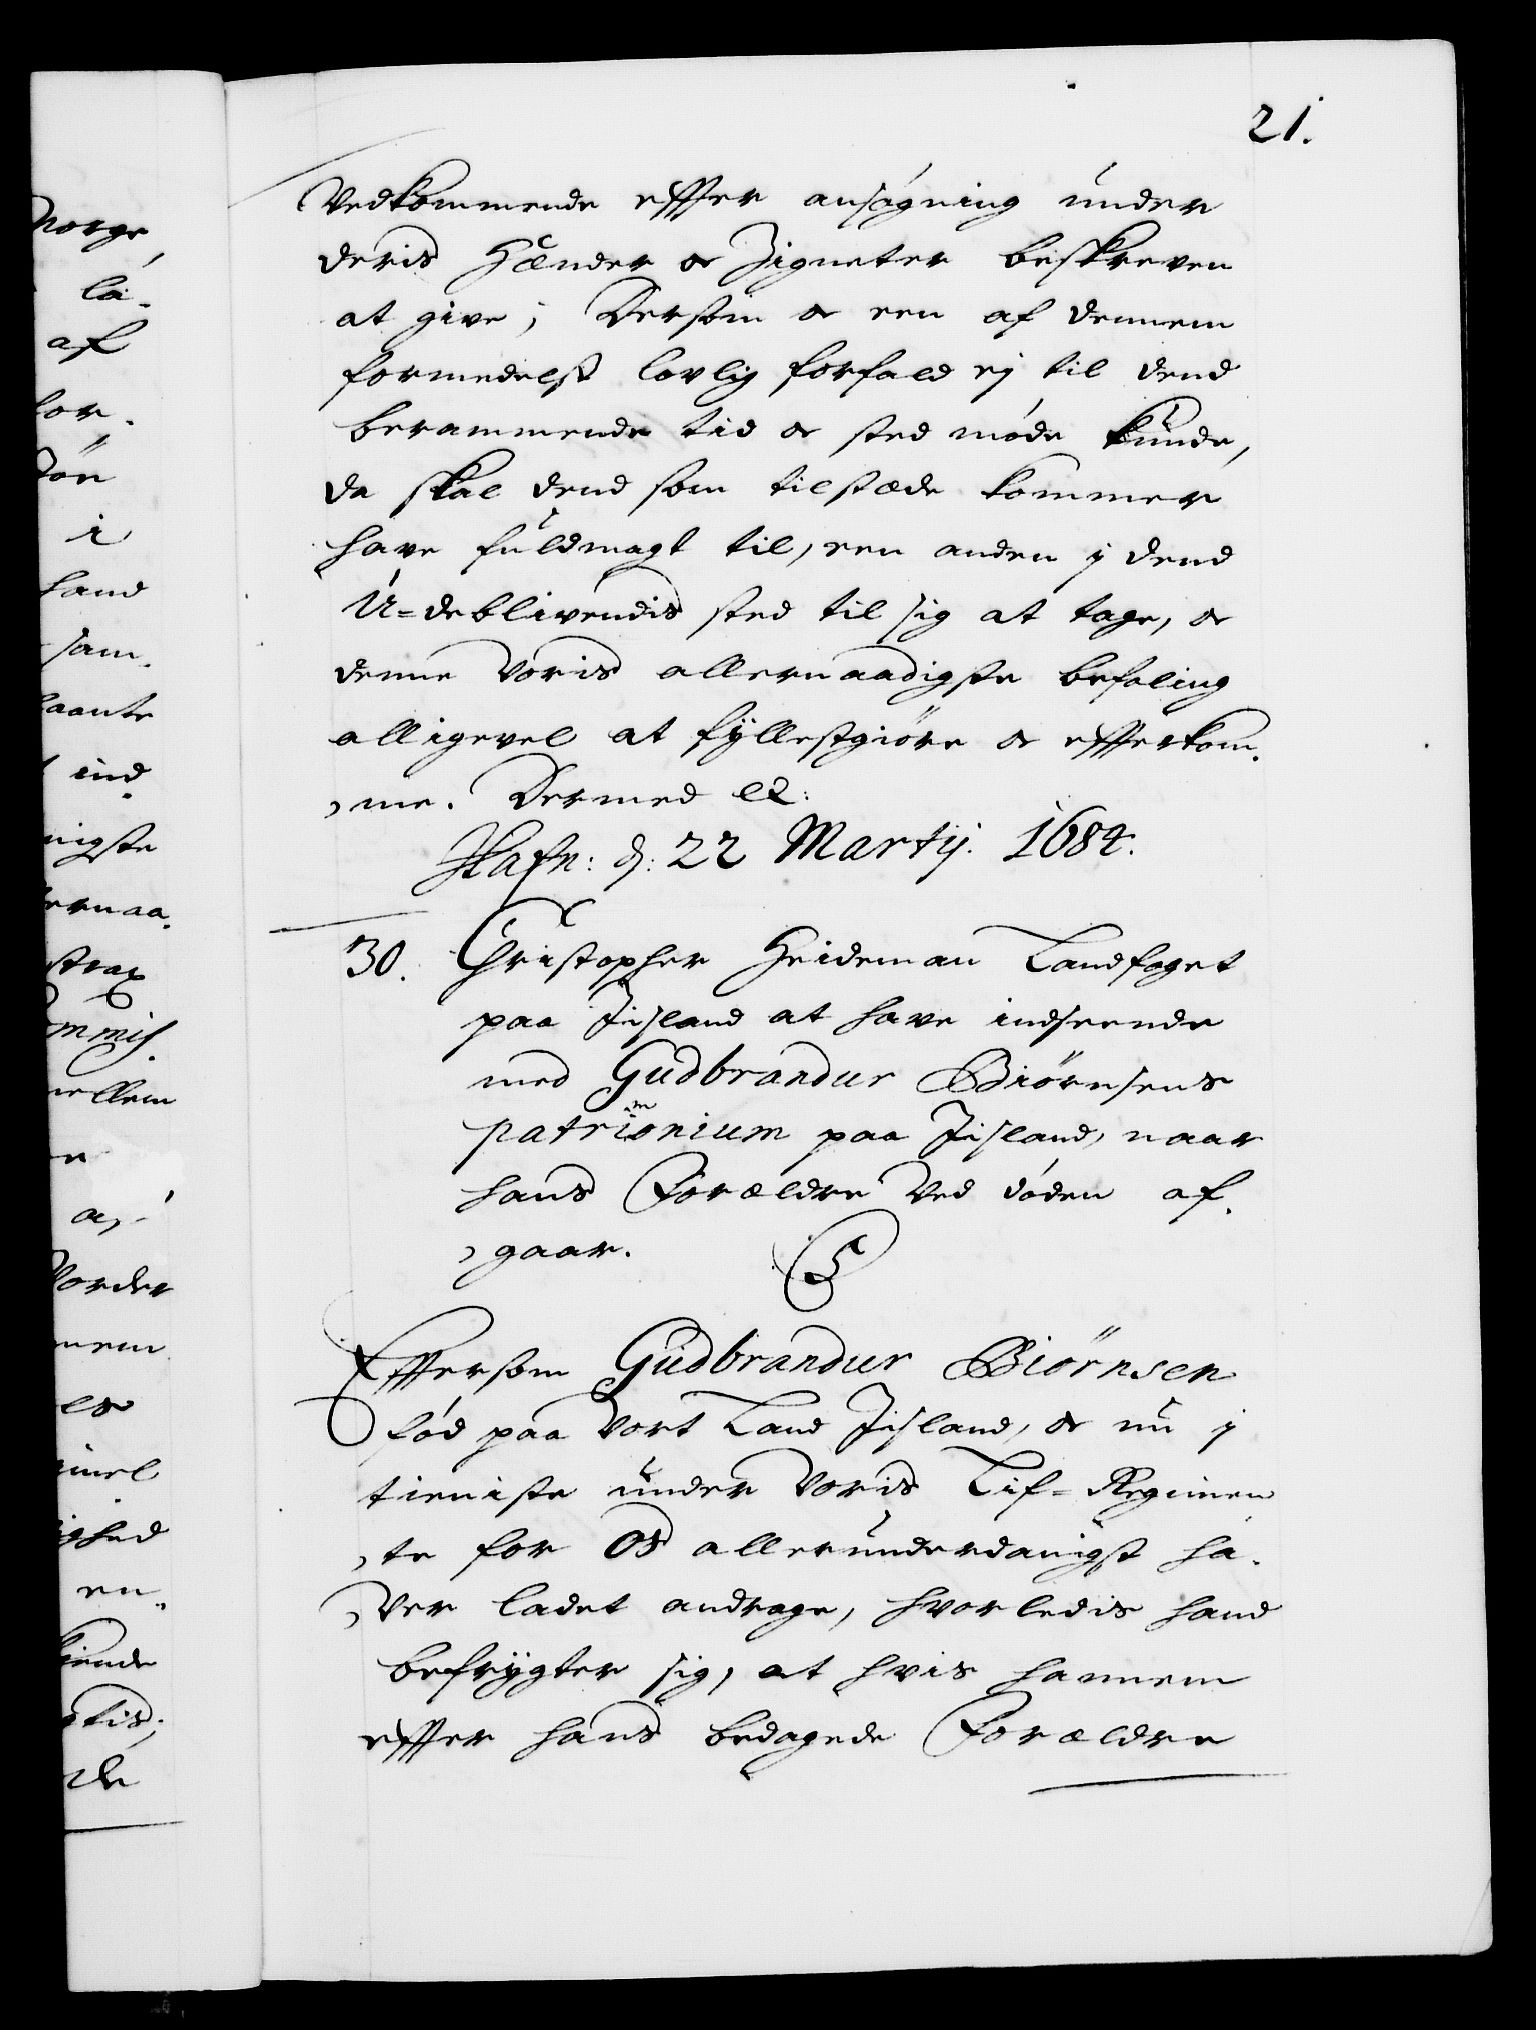 21.
Vedkommende effter ansøgning under
deris Hænder oc Zigneter beskreven
at give; Dersom oc een af dennem
formedelst lovlig forfald ej til dend
berammende tid oc sted møde kunde,
da skal dend som tilstæde kommer
have fuldmagt til, een anden j dend
U=deblivendis sted til sig at tage, oc
denne Voris allernaadigste befaling
alligevel at fyllestgiöre oc effterkom-
me. Dermed etc:
Hafn: d: 22 Martij. 1684.
30. Christopher Heideman Landfoget
paa Jisland at have indseende
med Gudbrandur Biörnsens
patrimonium paa Jisland, naar
hans Forældre Ved døden af-
gaar.
C5
Efftersom Gudbrandur Biörnsen
fød paa Vort Land Jisland, oc nu j
tieniste under Voris Lif=Regimen
te for OS allerunderdanigst ha-
Ver ladet andrage, hvorledis hand
befrygter sig, at hvis hannem
effter hans bedagede Forældre
Norge,
la-
af
for-
i
hand
sam-
laante
ind-
nigste
ernaa-
strax
ommis-
mellem
Vorder
nem
els
ighed
en-
kiende
tis;
de